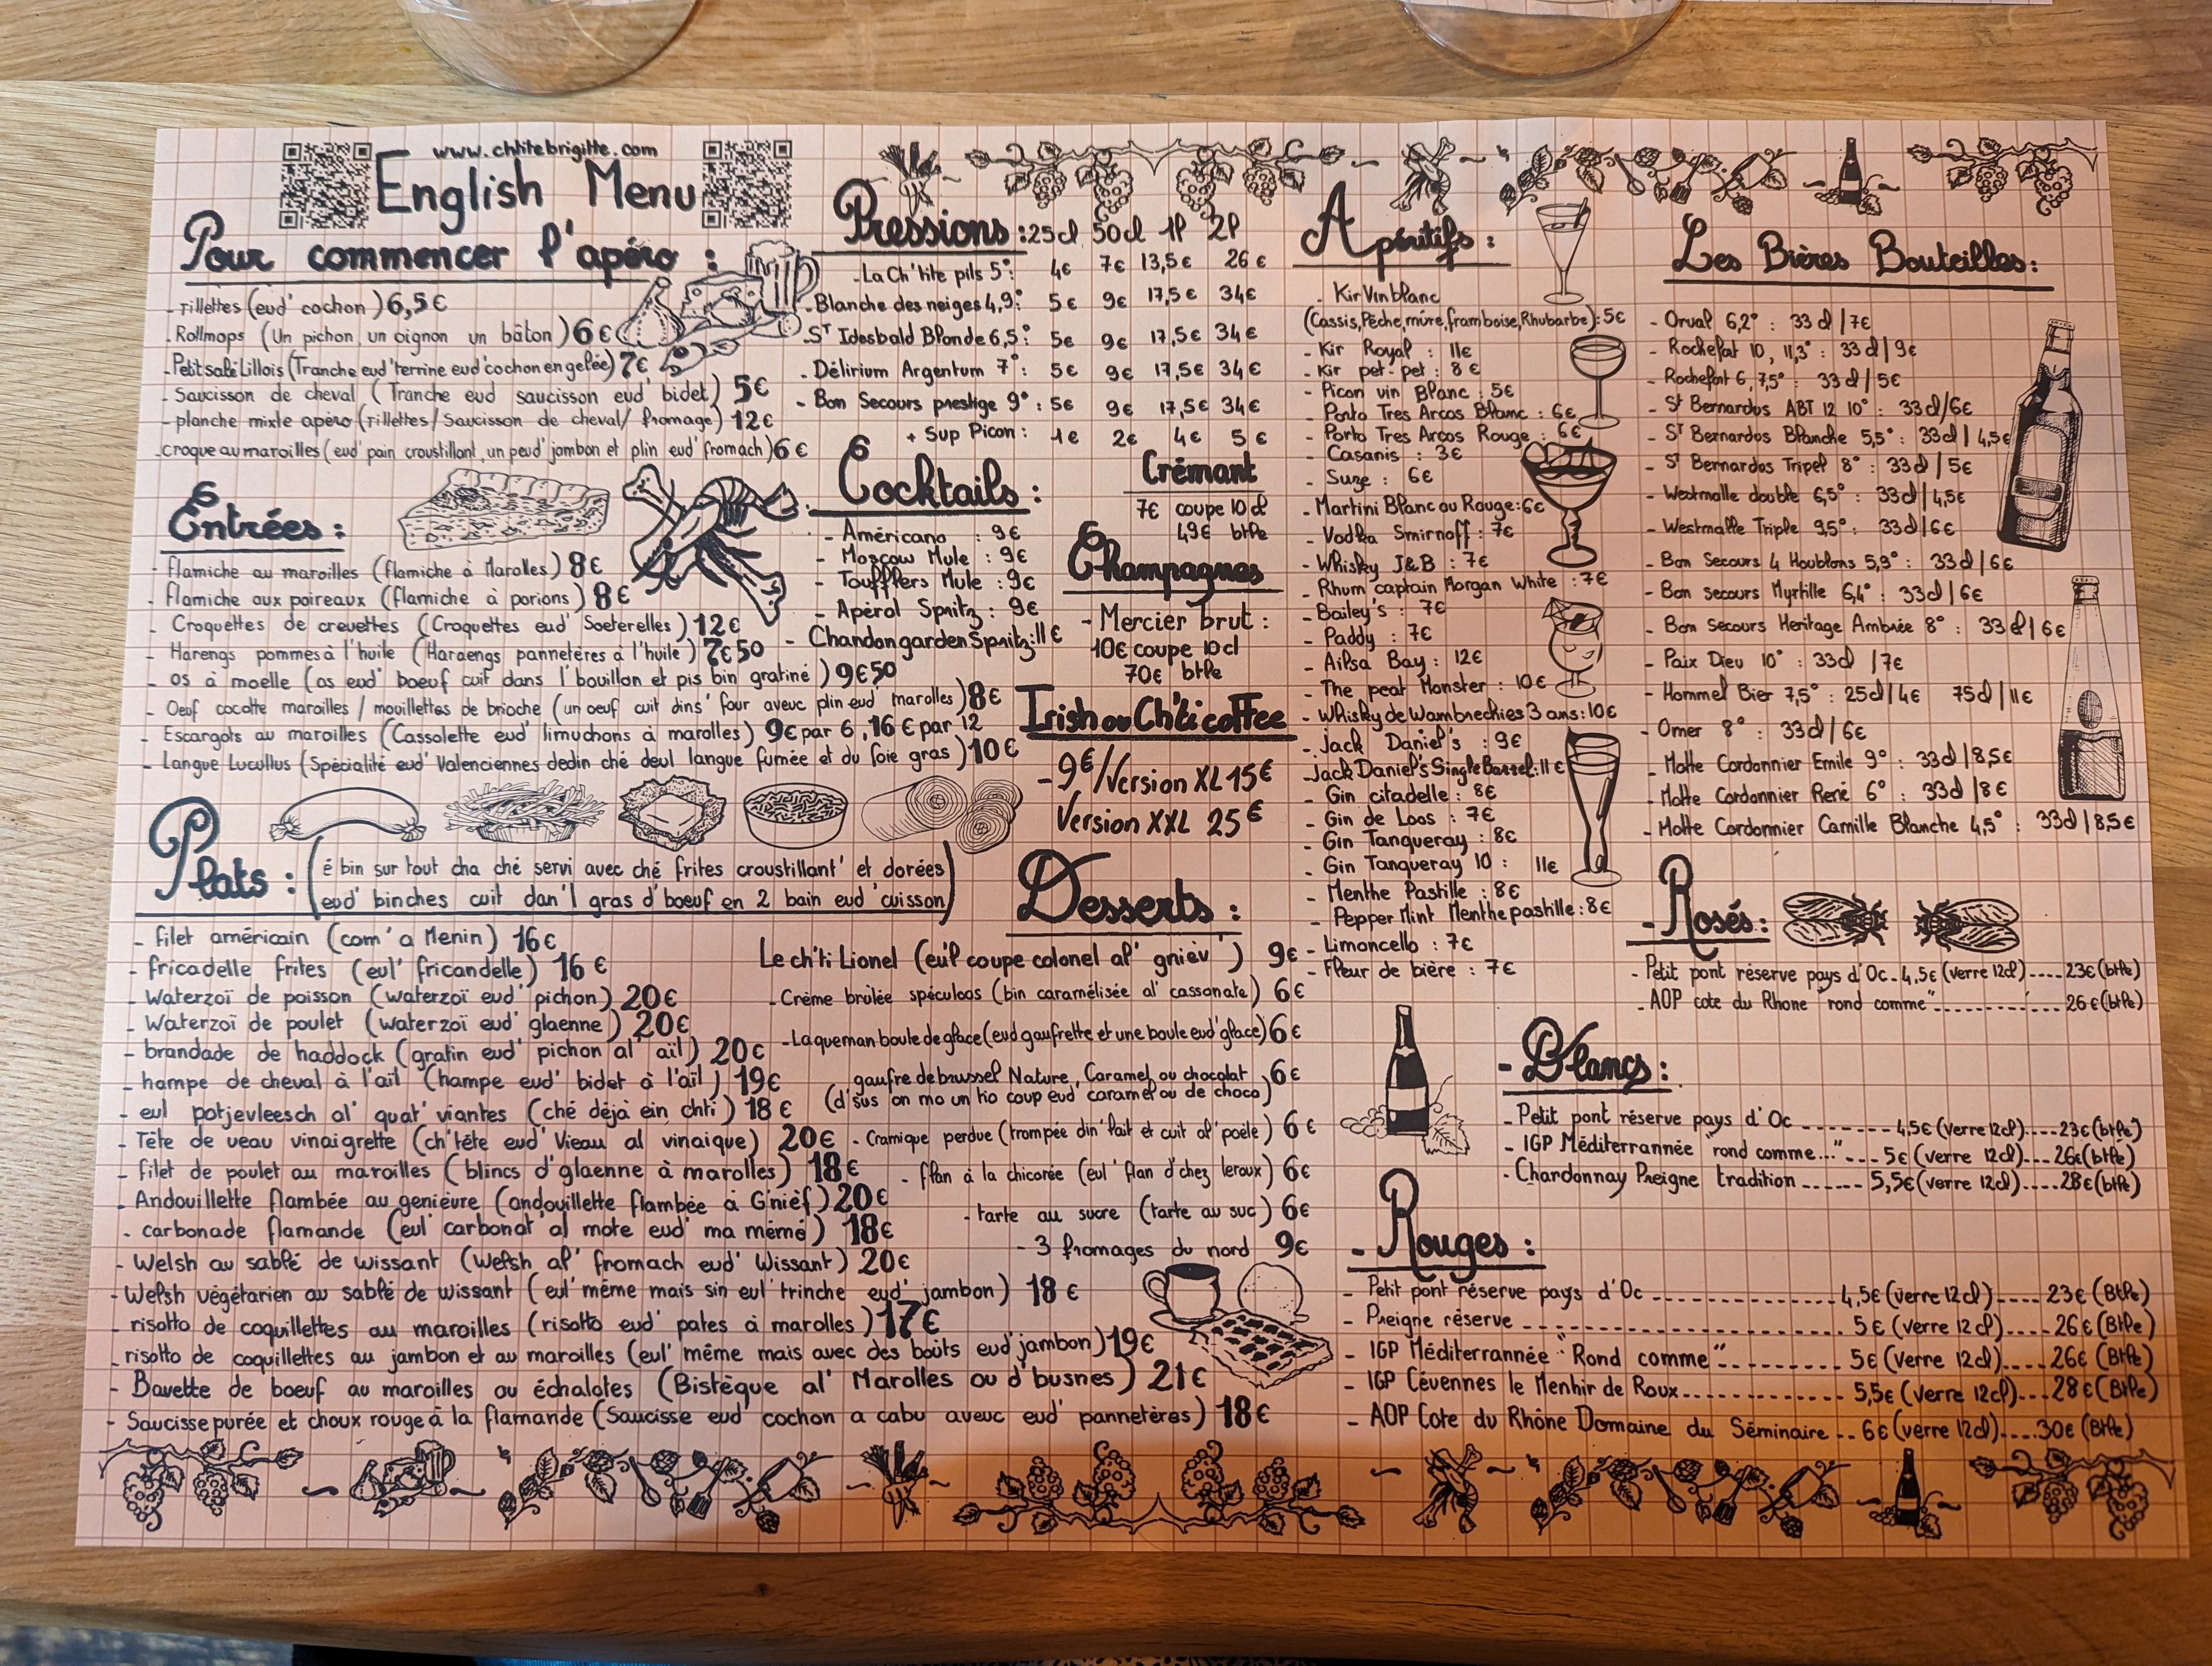 www.chtitebrigitte.com
English Menu
Pour commencer l'apéro :
- rillettes (eud' cochon) 6,5€
- Rollmops (Un pichon, un oignon un bâton) 6€
- Petit salé Lillois (Tranche eud' terrine eud' cochon en gelée) 7€
- Saucisson de cheval (Tranche eud saucisson eud' bidet) 5€
- planche mixte apéro (rillettes/Saucisson de cheval/ fromage) 12€
- croque au maroilles (eud' pain croustillant, un peud' jambon et plin eud' fromach) 6€
Entrées :
- flamiche au maroilles (flamiche à Marolles) 8€
- flamiche aux poireaux (flamiche à porions) 8€
- Croquettes de crevettes (Croquettes eud' Soeterelles) 12€
- Harengs pommes à l'huile (Haraengs pannetères à l'huile) 7€50
- os à moelle (os eud' boeuf cuit dans l'bouillon et pis bin gratiné) 9€50
- Oeuf cocotte maroilles / mouillettes de brioche (un oeuf cuit dins' four aveuc plin eud' marolles) 8€
- Escargots au maroilles (Cassolette eud' limuchons à marolles) 9€ par 6, 16€ par 12
- Langue Lucullus (Spécialité eud' Valenciennes dedin ché deul langue fumée et du foie gras) 10€
Plats : (é bin sur tout cha ché servi avec ché frites croustillant' et dorées
eud' binches cuit dan'l gras d'boeuf en 2 bain eud'cuisson)
- filet américain (com'a Menin) 16€
- fricadelle frites (eul' fricandelle) 16€
- Waterzoï de poisson (waterzoï eud' pichon) 20€
- Waterzoï de poulet (waterzoï eud' glaenne) 20€
- brandade de haddock (gratin eud' pichon al' ail) 20€
- hampe de cheval à l'ail (hampe eud' bidet à l'ail) 19€
- eul potjevleesch al' quat' viantes (ché déjà ein chti) 18€
- Tête de veau vinaigrette (ch'tête eud' Vieau al vinaique) 20€
- filet de poulet au maroilles (blincs d'glaenne à marolles) 18€
- Andouillette flambée au genièvre (andouillette flambée à G'nièf) 20€
- carbonade flamande (eul' carbonat' al mote eud' ma mémé) 18€
- Welsh au sablé de wissant (Welsh al' fromach eud' Wissant) 20€
- Welsh végétarien au sablé de wissant (eul' même mais sin eul' trinche eud' jambon) 18€
- risotto de coquillettes au maroilles (risotto eud' pates à marolles) 17€
- risotto de coquillettes au jambon et au maroilles (eul' même mais avec des bouts eud' jambon) 19€
- Bavette de boeuf au maroilles ou échalotes (Bistèque al' Marolles ou d'busnes) 21€
- Saucisse purée et choux rouge à la flamande (Saucisse eud' cochon a cabu aveuc eud' pannetères) 18€
Pressions : 25cl 50cl 1l 2l
- La Ch'tite pils 5° : 4€ 7€ 13,5€ 26€
- Blanche des neiges 4,9° : 5€ 9€ 17,5€ 34€
- St Idesbald Blonde 6,5° : 5€ 9€ 17,5€ 34€
- Délirium Argentum 7° : 5€ 9€ 17,5€ 34€
- Bon Secours prestige 9° : 5€ 9€ 17,5€ 34€
+ Sup Picon : 1€ 2€ 4€ 5€
Cocktails :
- Américano : 9€
- Moscow Mule : 9€
- Toufflers Mule : 9€
- Apérol Spritz : 9€
- Chandon garden Spritz : 11€
Crémant
7€ coupe 10cl
49€ btlle
Champagnes
- Mercier brut :
10€ coupe 10cl
70€ btlle
Irish ou Ch'ti coffee
- 9€/Version XL 15€
Version XXL 25€
Desserts :
Le ch'ti Lionel (eu'l coupe colonel al' gnièv') 9€
- Crème brûlée spéculoos (bin caramélisée al' cassonate) 6€
- La queman boule de glace (eud gaufrette et une boule eud'glace) 6€
gaufre de brussel Nature, Caramel ou chocolat 6€
(d'sus on mo un tio coup eud' caramel ou de choco)
- Cramique perdue (trompée din'lait et cuit al'poele) 6€
- flan à la chicorée (eul' flan d'chez leroux) 6€
- tarte au sucre (tarte au suc) 6€
- 3 fromages du nord 9€
Apéritifs :
- Kir Vin blanc
(Cassis, Pêche, mûre, framboise, Rhubarbe) : 5€
- Kir Royal : 11€
- Kir pet-pet : 8€
- Picon vin Blanc : 5€
- Porto Tres Arcos Blanc : 6€
- Porto Tres Arcos Rouge : 6€
- Casanis : 3€
- Suze : 6€
- Martini Blanc ou Rouge : 6€
- Vodka Smirnoff : 7€
- Whisky J&B : 7€
- Rhum captain Morgan White : 7€
- Bailey's : 7€
- Paddy : 7€
- Ailsa Bay : 12€
- The peat Monster : 10€
- Whisky de Wambrechies 3 ans : 10€
- Jack Daniel's : 9€
- Jack Daniel's Single Barrel : 11€
- Gin citadelle : 8€
- Gin de Loos : 7€
- Gin Tanqueray : 8€
- Gin Tanqueray 10 : 11€
- Menthe Pastille : 8€
- Pepper Mint Menthe pastille : 8€
- Limoncello : 7€
- Fleur de bière : 7€
Les Bières Bouteilles :
- Orval 6,2° : 33cl | 7€
- Rochefot 10, 11,3° : 33cl | 9€
- Rochefort 6, 7,5° : 33cl / 5€
- St Bernardus ABT 12 10° : 33cl/6€
- St Bernardus Blanche 5,5° : 33cl | 4,5€
- St Bernardus Tripel 8° : 33cl | 5€
- Westmalle double 6,5° : 33cl | 4,5€
- Westmalle Triple 9,5° : 33cl | 6€
- Bon Secours 4 Houblons 5,9° : 33cl | 6€
- Bon secours Myrtille 6,4° : 33cl | 6€
- Bon secours Heritage Ambrée 8° : 33cl | 6€
- Paix Dieu 10° : 33cl | 7€
- Hommel Bier 7,5° : 25cl / 4€ 75cl | 11€
- Omer 8° : 33cl / 6€
- Motte Cordonnier Emile 9° : 33cl | 8,5€
- Motte Cordonnier René 6° : 33cl | 8€
- Motte Cordonnier Camille Blanche 4,5° : 33cl | 8,5€
- Rosés :
- Petit pont réserve pays d'Oc - 4,5€ (verre 12cl) ---- 23€ (btlle)
- AOP cote du Rhone "rond comme" ---- 26€ (btlle)
- Blancs :
- Petit pont réserve pays d'Oc ---- 4,5€ (verre 12cl) ---- 23€ (btlle)
- IGP Méditerrannée "rond comme..." --- 5€ (verre 12cl) --- 26€ (btlle)
- Chardonnay Preigne tradition ---- 5,5€ (verre 12cl) ---- 28€ (btlle)
- Rouges :
- Petit pont réserve pays d'Oc ---- 4,5€ (verre 12cl) ---- 23€ (Btlle)
- Preigne réserve ---- 5€ (verre 12cl) ---- 26€ (Btlle)
- IGP Méditerrannée "Rond comme" ---- 5€ (verre 12cl) ---- 26€ (Btlle)
- IGP Cévennes le Menhir de Roux ---- 5,5€ (verre 12cl) --- 28€ (Btlle)
- AOP Cote du Rhône Domaine du Séminaire -- 6€ (verre 12cl) ---- 30€ (Btlle)